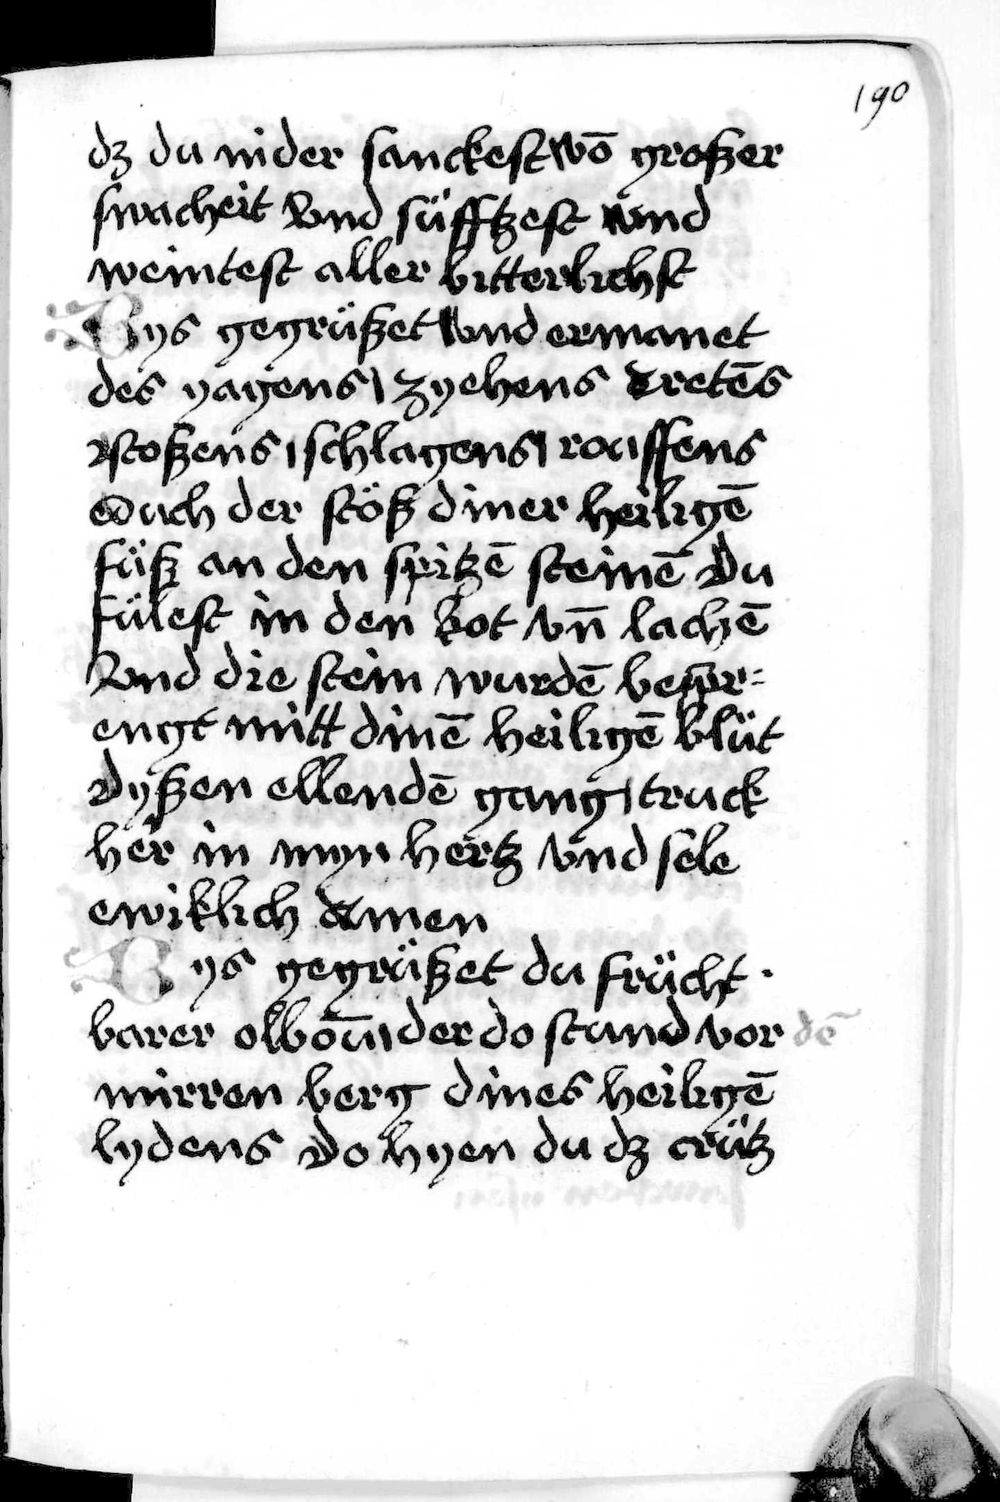 190
dz du nider sanckest vō großer
swacheit Vnd süfftzest vnd
weintest aller bitterlichst
Bys gegrüßet Vnd ermanet
des yagens / zyehens tretēs
stoßens / schlagens / rouffens
Ouch der stöß diner heiligē
füß an den spitzē steinē Du
fülest in den kot vn̄ lachē
Vnd die stein wurdē bespr=
engt mitt dinē heiligē blüt
Dyßen ellendē gang / truck
her in myn hertz vnd sele
ewiklich Amen
Bys gegrüßet du frücht ·
barer olboū der do stund vor dē
mirren berg dines heiligē
lydens Do hyen du dz crütz